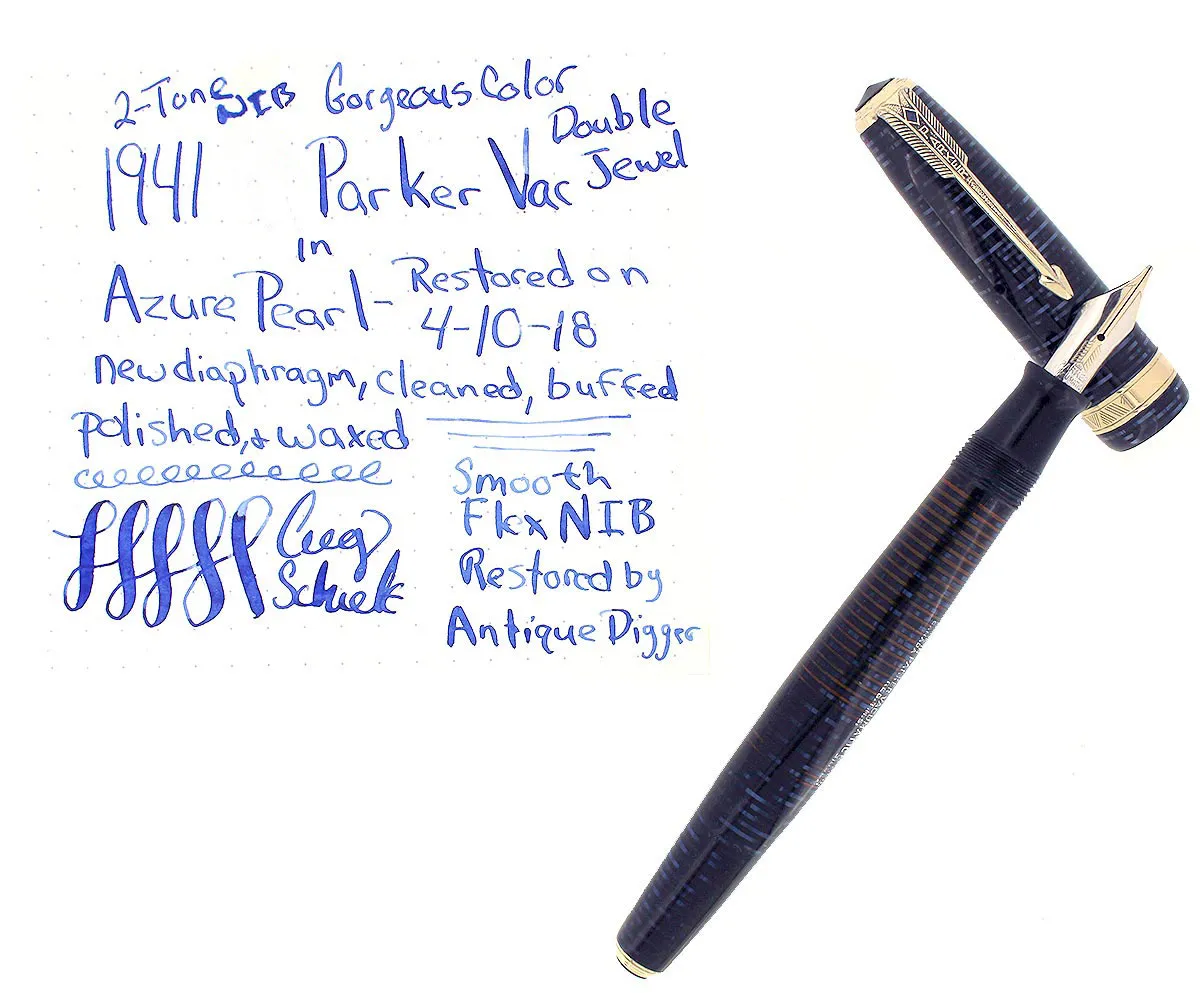 2-Tone NIB Gorgeous Color
1941 Parker Vac Double Jewel
in
Azure Pearl- Restored on
4-10-18
new diaphragm, cleaned, buffed
polished, & waxed
Smooth
Flex NIB
Restored by
Antique Digger
PARKER